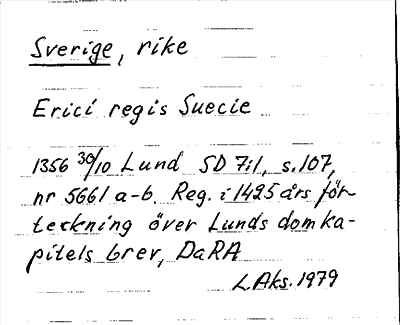 Sverige, rike
Erici regis Suecie
1356 30/10 Lund SD 7:1, s.107,
nr 5661 a-b. Reg. i 1425 års för-
teckning över Lunds domka-
pitels brev, DaRA
L Aks. 1979